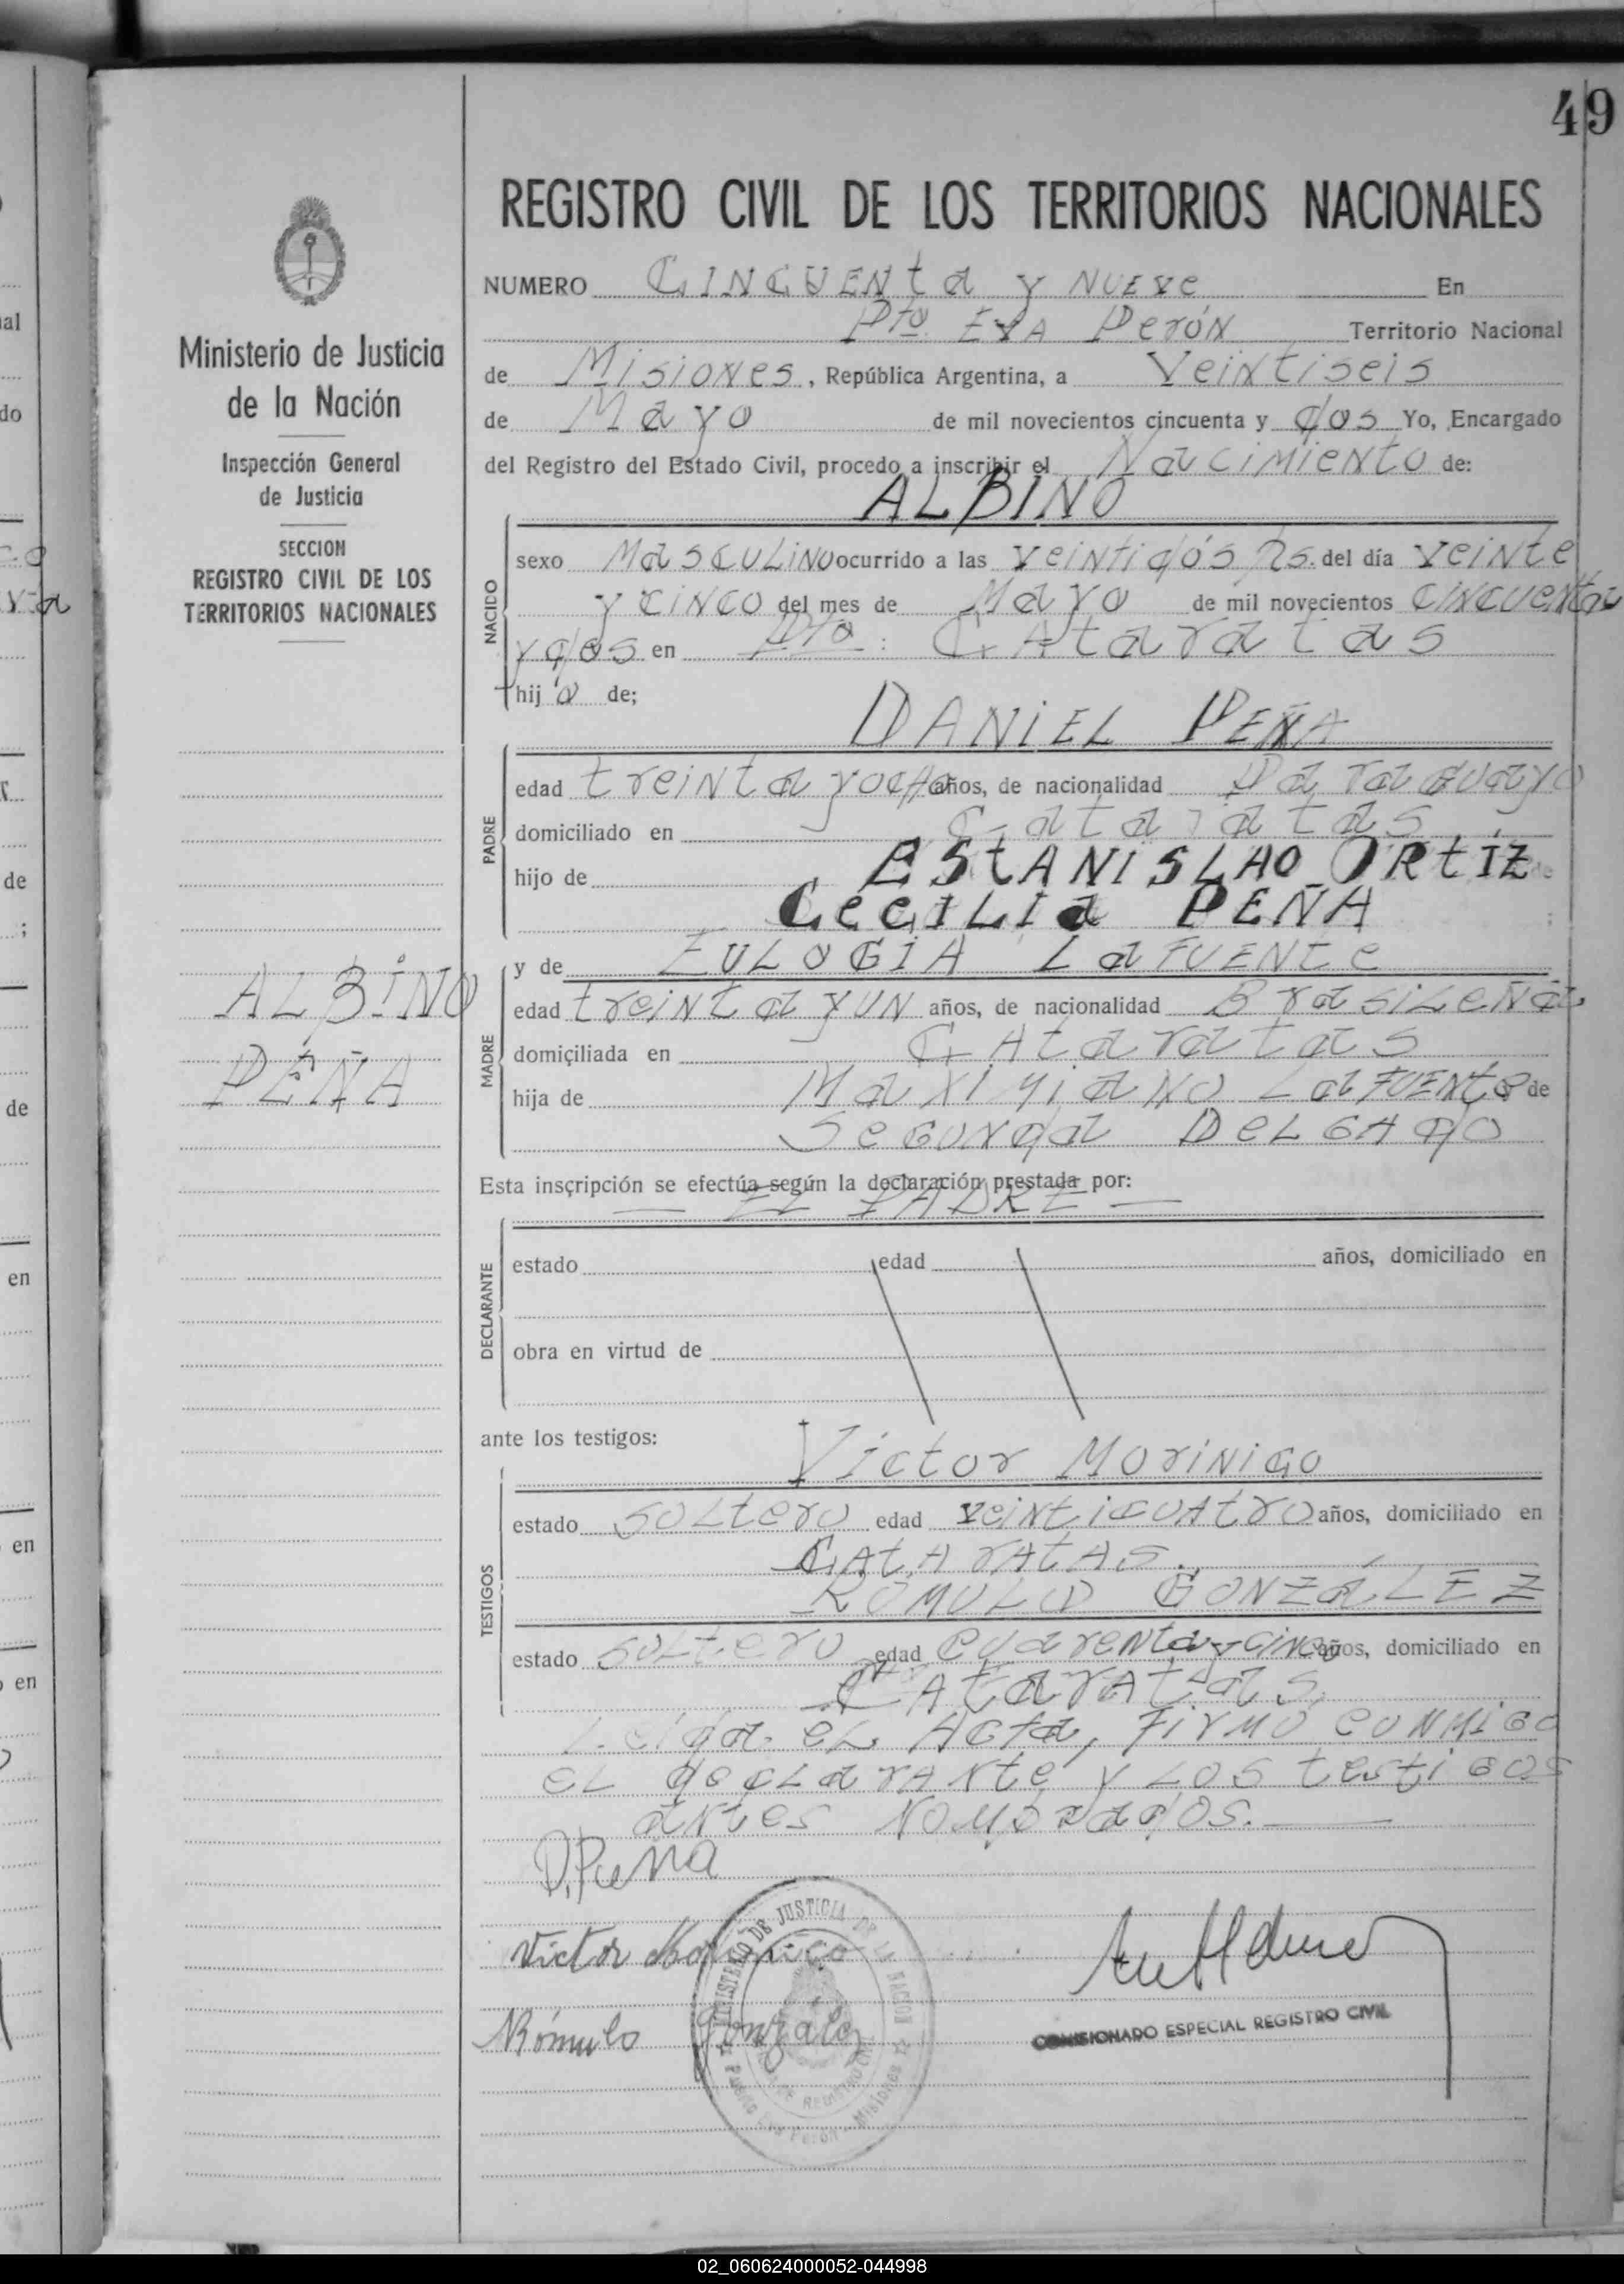 49
REGISTRO CIVIL DE LOS TERRITORIOS NACIONALES
Ministerio de Justicia
de la Nación
Inspección General
de Justicia
SECCION
REGISTRO CIVIL DE LOS
TERRITORIOS NACIONALES
ALBINO
PEÑA
NUMERO CINCUENta y NUEVe En
Pto. EVA Perón Territorio Nacional
de Misiones, República Argentina, a Veintiseis
de Mayo de mil novecientos cincuenta y dos Yo, Encargado
del Registro del Estado Civil, procedo a inscribir el Nacimiento de:
ALBINO
NACIDO
sexo MasCULiNO ocurrido a las veintidós hs. del día veinte
y cinco del mes de Mayo de mil novecientos cincuenta
y dos en Pto: CAtaratas
hijo de;
DANiEL PEÑA
PADRE
edad treinta y ocho años, de nacionalidad Paraguayo
domiciliado en Cataratas
hijo de EStANISLAO ORtiZ de
CeciLia PEÑA ;
y de EULOGIA LaFUENte
MADRE
edad treinta y UN años, de nacionalidad BrasiLeña
domiciliada en CAtaratas
hija de MaximiaNO LaFUENte de
SeGUNda DeLGAdo
Esta inscripción se efectúa según la declaración prestada por:
— EL PADRE —
DECLARANTE
estado edad años, domiciliado en
obra en virtud de
ante los testigos:
Victor MoriNiGO
TESTIGOS
estado SOLtero edad veiNtiCUAtro años, domiciliado en
CAtArAtAS.
RÓMULO GONZáLEZ
estado SOLtero edad CUareNta y cinco años, domiciliado en
CAtarAtas.
Leida eL Acta, Firmo coNMiGo
eL decLarANte y LOS testiGOS
antes NOMbrados. —
D. Peña
Victor Morinigo
Rómulo González
MINISTERIO DE JUSTICIA DE LA NACION
COMISIONADO ESPECIAL REGISTRO CIVIL
02_060624000052-044998